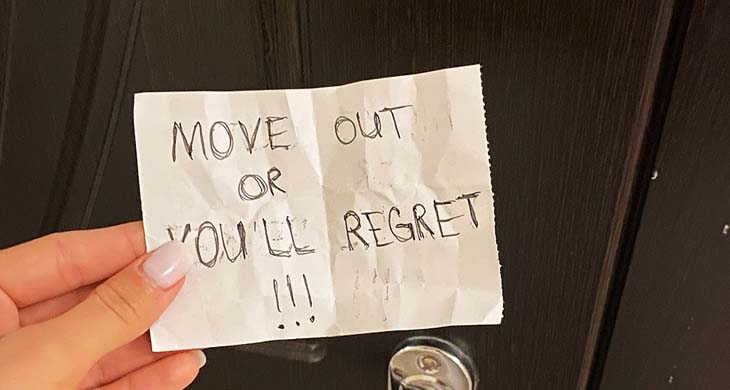 MOVE OUT
OR
YOU'LL REGRET
!!!